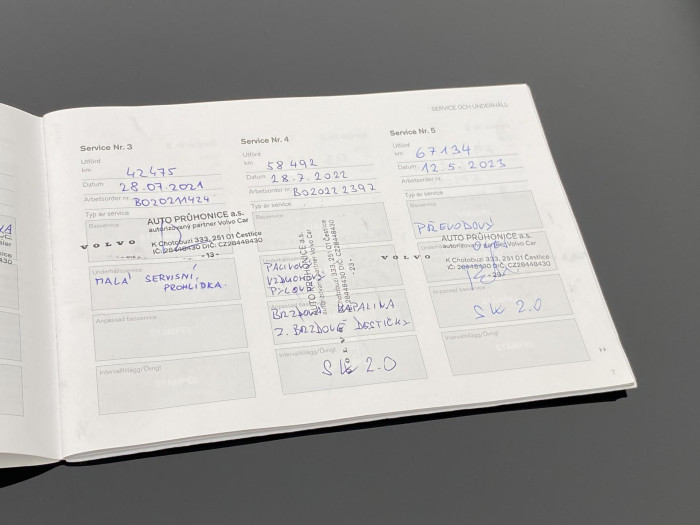 SERVICE OCH UNDERHÅLL
Service Nr. 3
Utförd
km 42475
Datum 28.07.2021
Arbetsorder nr. BO20211424
Typ av service
Basservice
AUTO PRŮHONICE a.s.
autorizovaný partner Volvo Car
VOLVO
K Chotobuzi 333, 251 01 Čestlice
IČ: 28448430 DIČ: CZ28448430
- 13 -
MALÁ SERVISNÍ
PROHLÍDKA.
Anpassad basservice
Intervalltillägg/Övrigt
Service Nr. 4
Utförd
km 58 492
Datum 28.7.2022
Arbetsorder nr. BO2022 2392
Typ av service
Basservice
AUTO PRŮHONICE a.s.
autorizovaný partner Volvo Car
K Chotobuzi 333, 251 01 Čestlice
28448430 DIČ: CZ28448430
- 23 -
PALIVOVÝ
VZDUCHOVÝ
PYLOVÝ
BRZDOVÁ KAPALINA
Z. BRZDOVÉ DESTIČKY
Intervalltillägg/Övrigt
SW 2.0
Service Nr. 5
Utförd
km 67134
Datum 12.5.2023
Arbetsorder nr.
Typ av service
Basservice
AUTO PRŮHONICE a.s.
autorizovaný partner Volvo Car
VOLVO
K Chotobuzi 333, 251 01 Čestlice
IČ: 28448430 DIČ: CZ28448430
- 23 -
Anpassad basservice
SW 2.0
Intervalltillägg/Övrigt